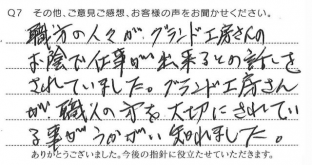 Q7 その他、ご意見ご感想、お客様の声をお聞かせください。
職方の人々が、グランド工房さんの
お陰で仕事が出来るとの話しを
されていました。グランド工房さん
が、職人の方を大切にされてい
る事がうかがい知れました。
ありがとうございました。今後の指針に役立たせていただきます。